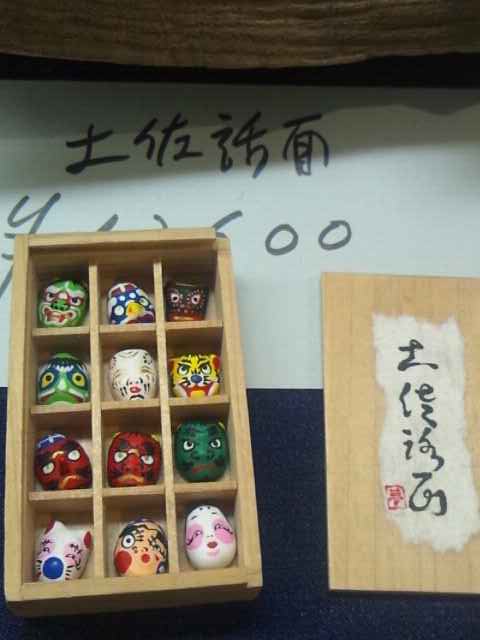 土佐話面
¥12600
土佐話面